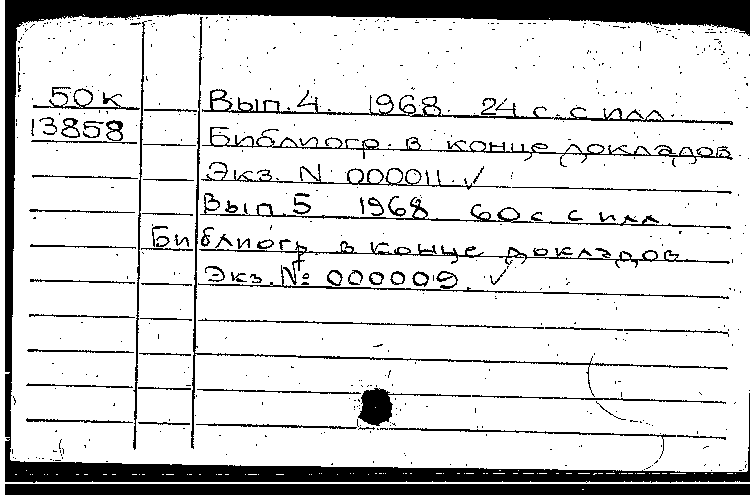 50к Вып.4. 1968. 24 с. с илл.
13858 Библиогр. в конце докладов.
Экз. N 000011. ✓
Вып.5 1968 60 с. с илл.
Библиогр. в конце докладов.
Экз. № 000009. ✓